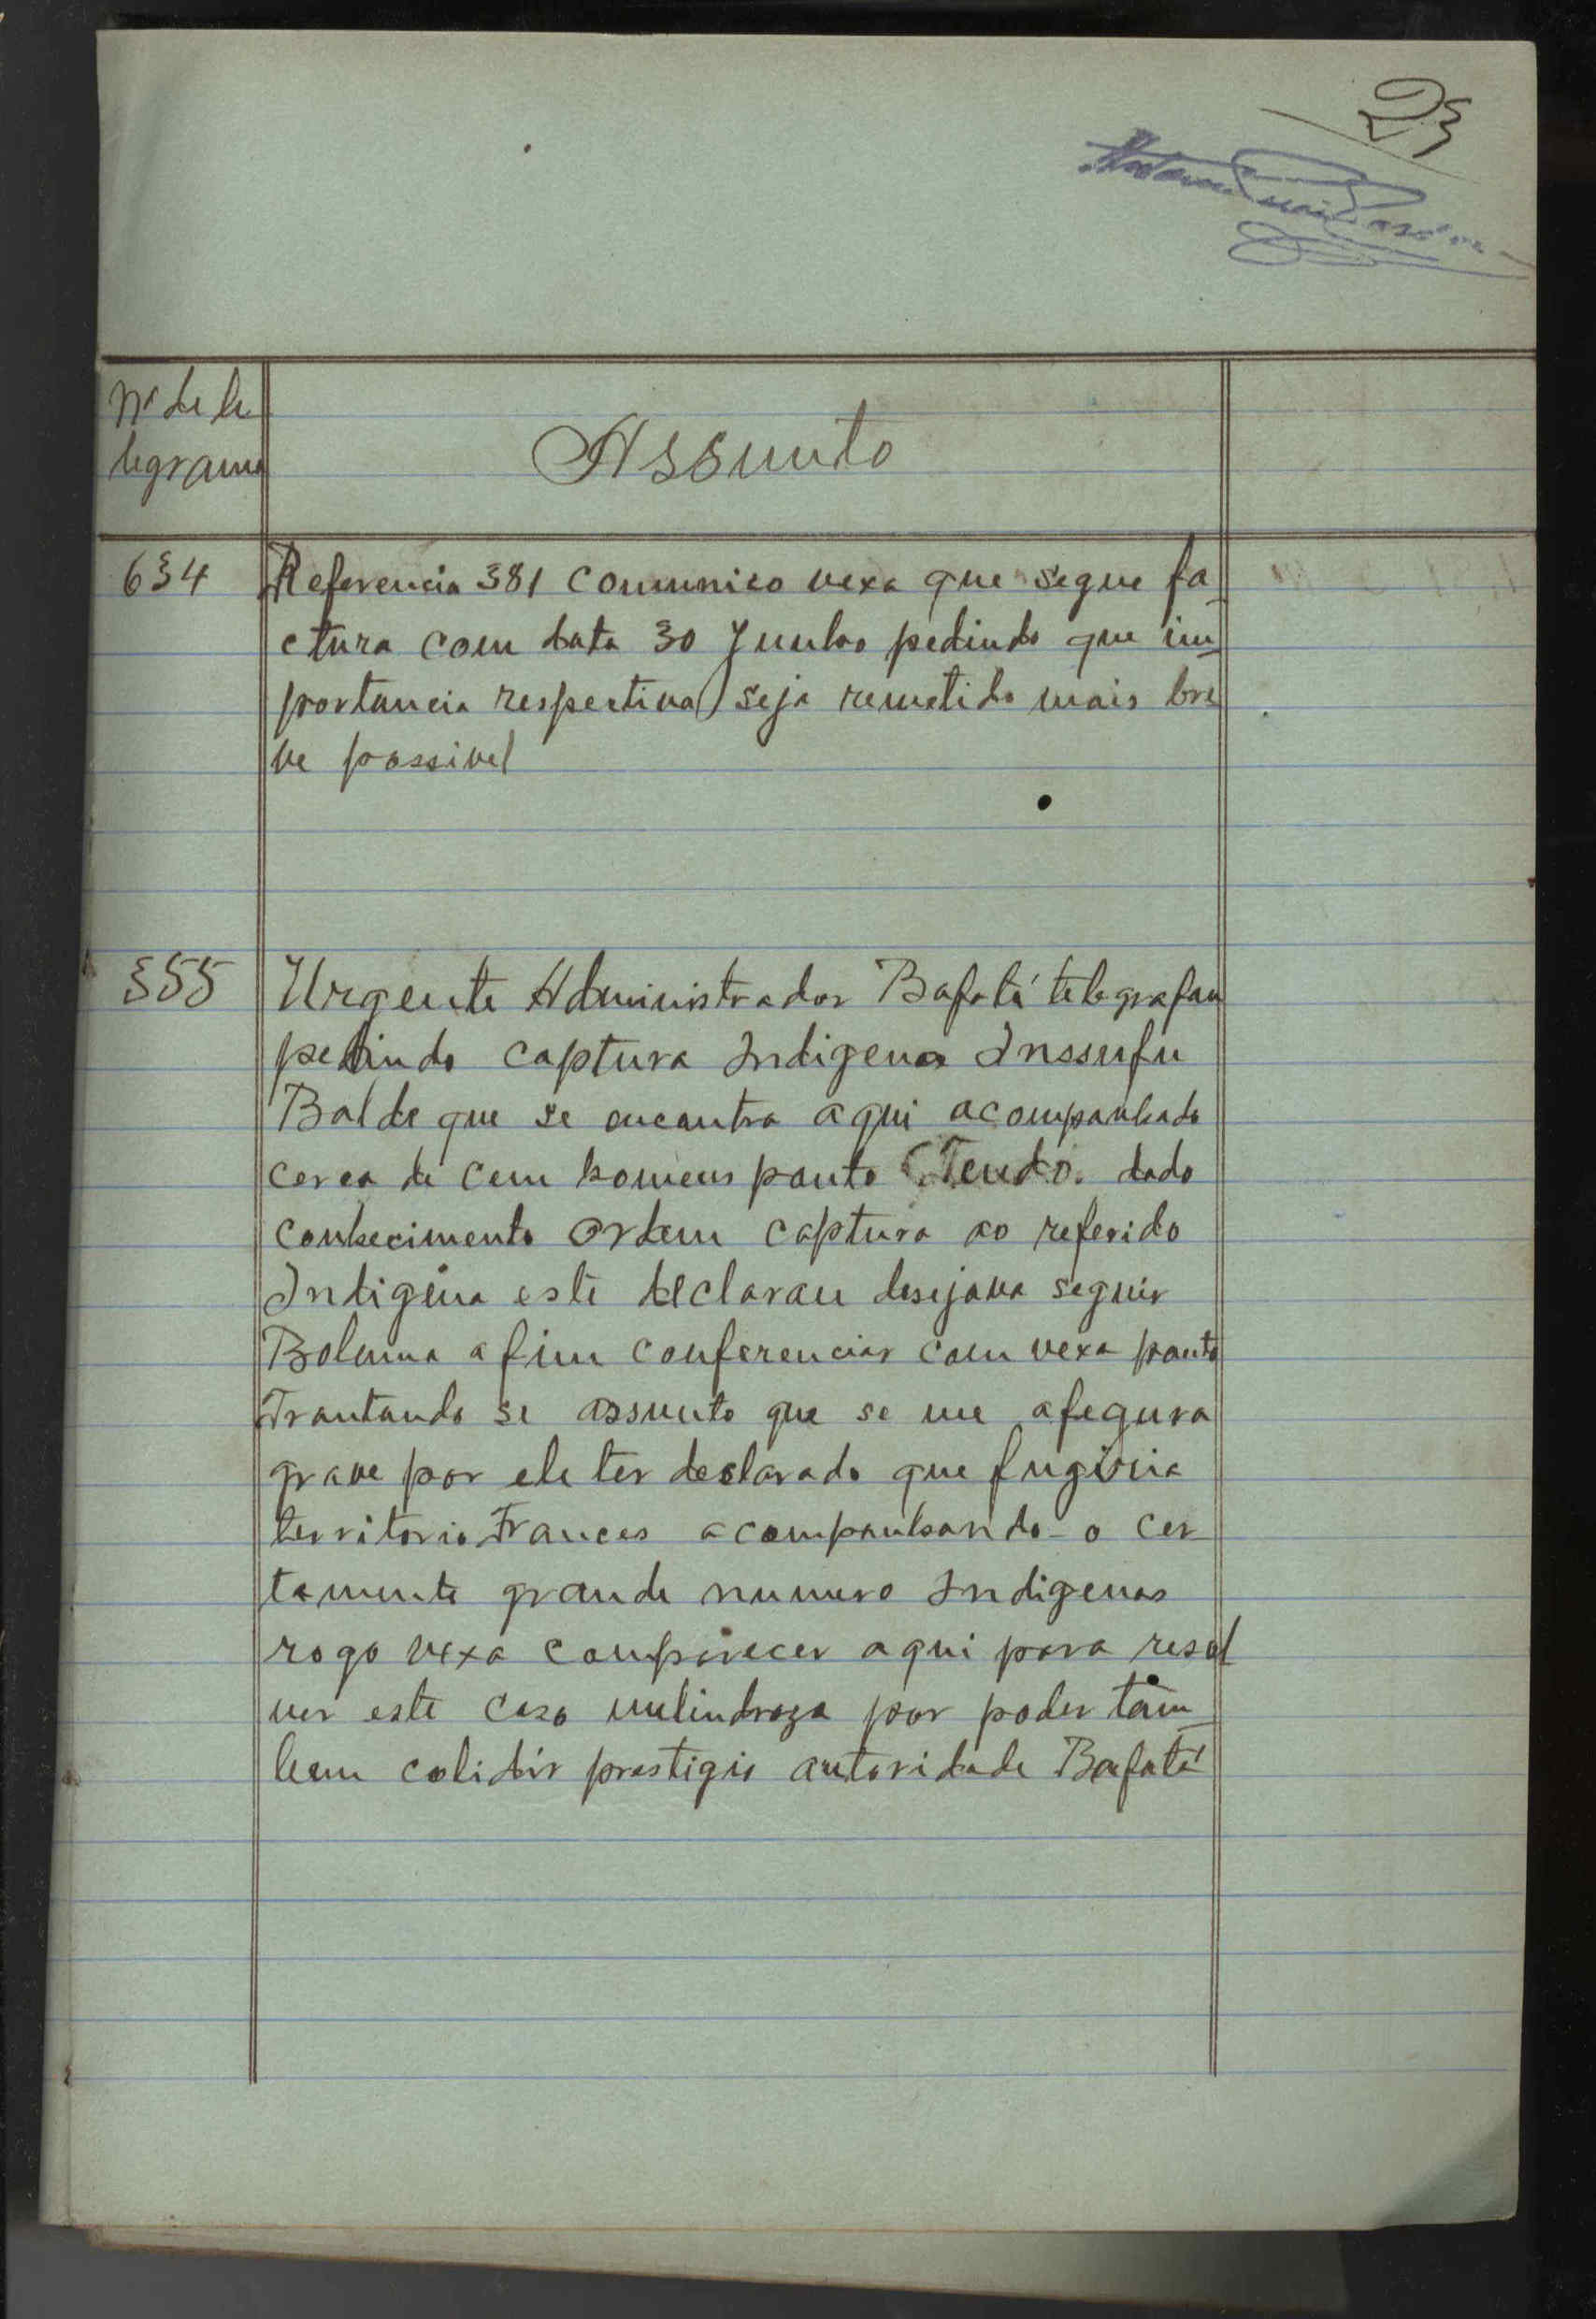 23
Nº de te
legrama
Assunto
634
Referencia 381 comunico vexa que segue fa_
ctura com data 30 Junho pedindo que im_
portancia respectiva seja remetido mais bre
ve possivel
355
Urgente Administrador Bafatá telegrafou
pedindo captura Indigena Inssufu
Balde que se encontra aqui acompanhado
cerca de cem homens ponto Tendo dado
conhecimento ordem captura ao referido
Indigena este declarou desejava seguir
Bolama a fim conferenciar com vexa ponto
Trantando se assunto que se me afegura
grave por ele ter declarado que fugiria
territorio Frances acompanhando-o cer
tamente grande numero Indigenas
rogo vexa comparecer aqui para resol
ver este caso melindroza por poder tãm_
bem colidir prestigio autoridade Bafatá